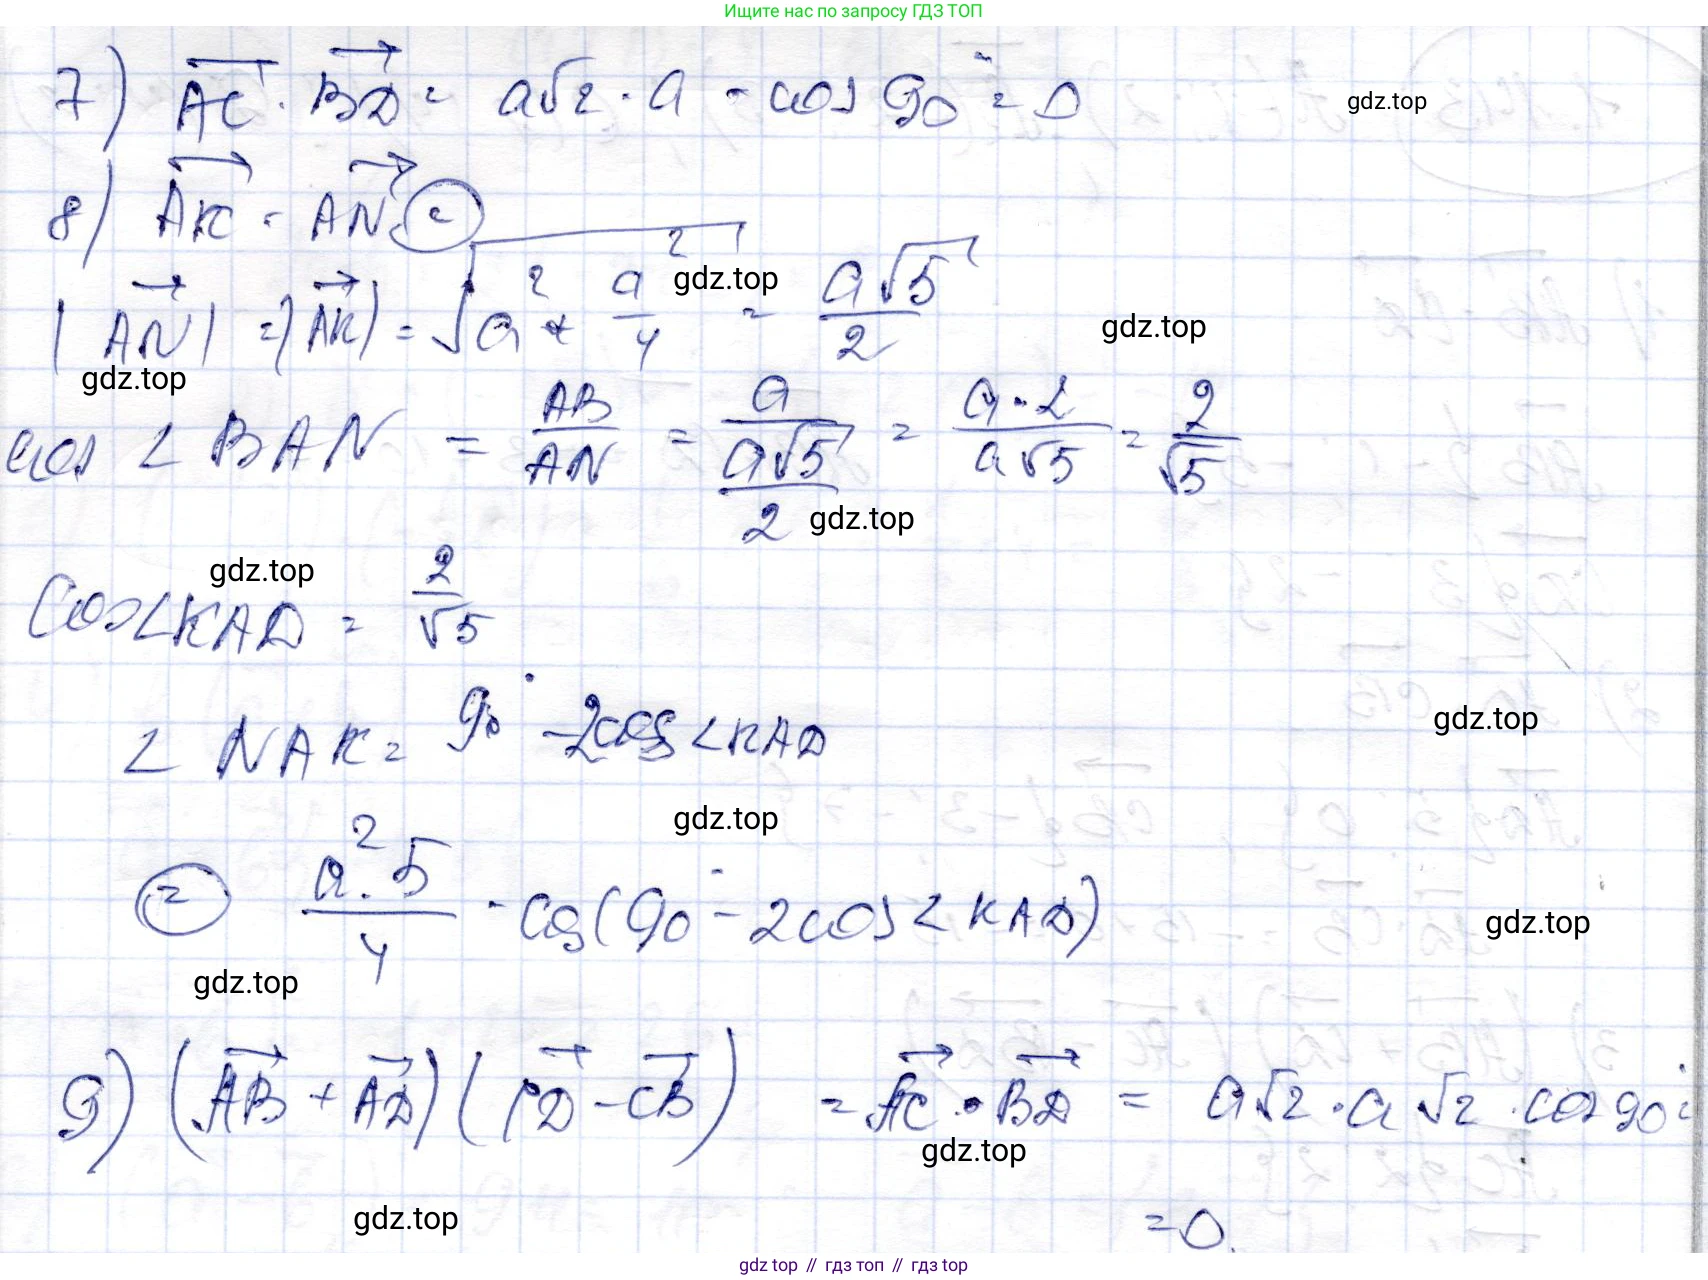 Ищите нас по запросу ГДЗ ТОП
7) AC · BD = a√2 · a · cos 90° = 0
gdz.top
8) AK · AN =
|AN| = |AK| = √(a² + a²/4) = a√5/2
gdz.top
gdz.top
gdz.top
cos ∠BAN = AB/AN = a/(a√5/2) = a·2/(a√5) = 2/√5
gdz.top
gdz.top
cos∠KAD = 2/√5
∠NAK = 90° - 2cos ∠KAD
gdz.top
gdz.top
= a²·5/4 · cos(90° - 2cos∠KAD)
gdz.top
gdz.top
9) (AB + AD)(CD - CB) = AC · BD = a√2 · a√2 · cos 90° =
gdz.top
gdz.top
= 0
gdz top // гдз топ // gdz top